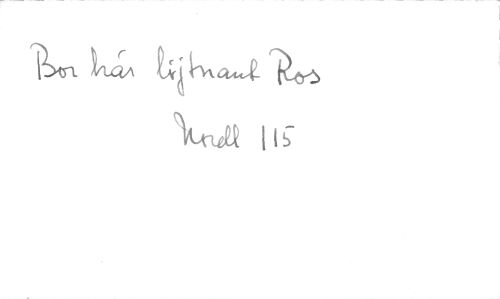 Bor här löjtnant Ros
Nordl 115